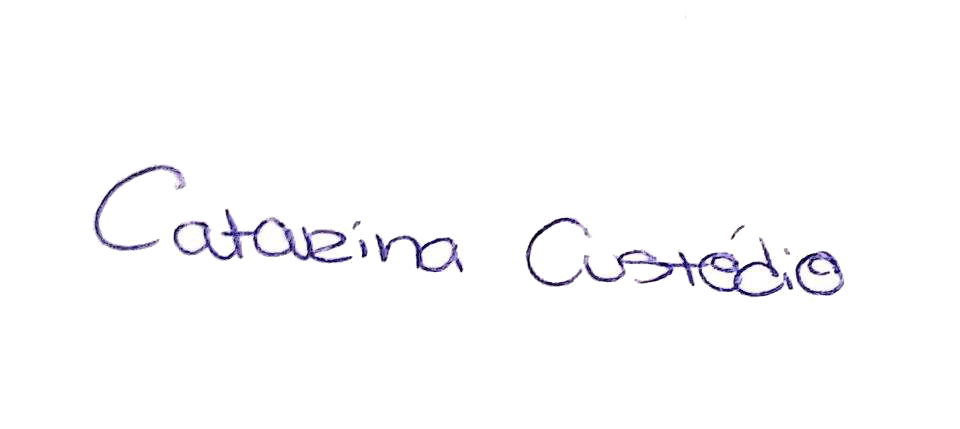 Catarina Custódio